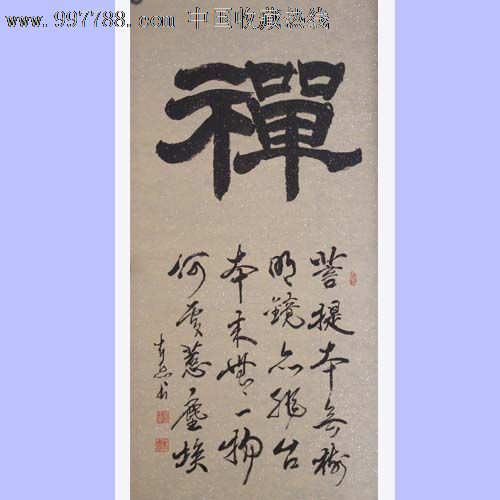 www.997788.com 中国收藏热线
禪
菩提本无樹
明鏡亦非台
本来無一物
何處惹塵埃